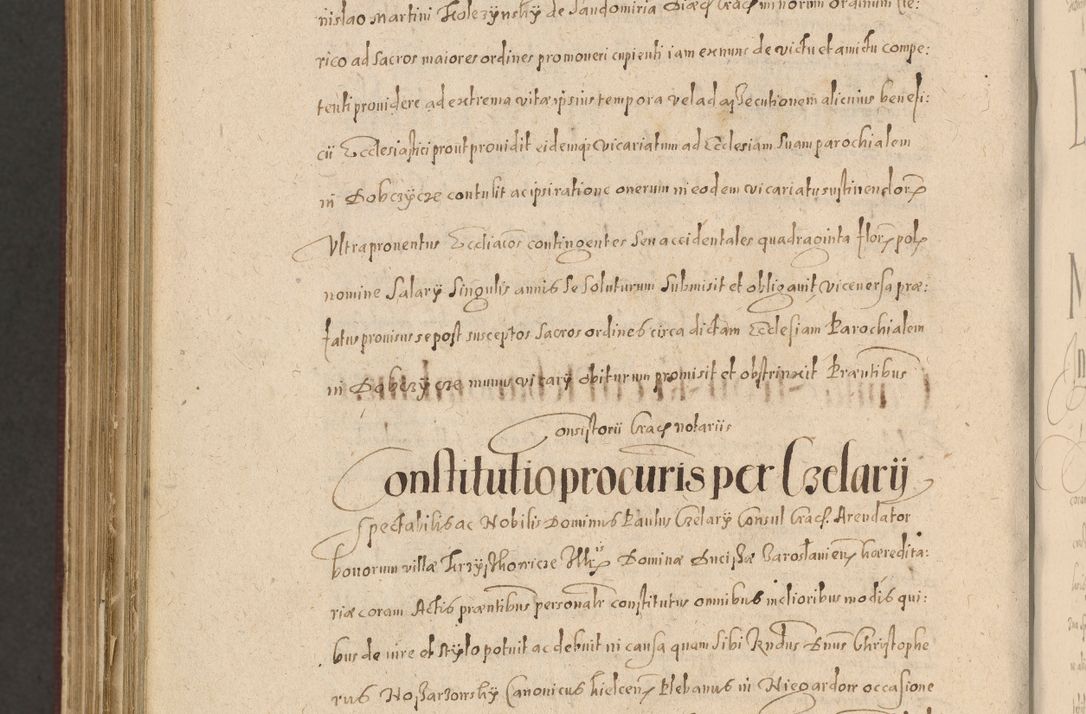 nislao Martini Kolczynskÿ de Sandomiria Diæc Crac minorum ordinum cle:
rico ad Sacros maiores ordines promoveri cupienti iam ex nunc de victu et amictu compe:
tenti providere ad extrema vitæ ipsius tempora vel ad assecutionem alicuius benefi:
cii Ecclesiastici prout providit eidemq; vicariatum ad Ecclesiam Suam parochialem
in Dobczÿcze contulit ac ipsi ratione onerum in eodem vicariatu sustinendor
Vltra proventus Eccliacos contingentes Seu accidentales quadraginta flor pol
nomine Salarÿ Singulis annis Se Soluturum Submisit et obligavit, viceversa præ:
fatus provisus se post susceptos Sacros ordines circa dictam Ecclesiam Parochialem
in Dobczÿcze munus vicarÿ obiturum promisit et obstrinxit Præntibus
Consistorii Crac notariis
Constitutio procuris per Czelarÿ
Spectabilis ac Nobilis Dominus Paulus Czelarÿ Consul Crac. Arendator
bonorum villæ Krzÿsthowicze Illr Dominæ Ducissæ Jaroslavien hæredita:
riæ coram Actis præntibus personalr constitutus omnibus melioribus modis qui:
bus de iure et stÿlo potuit ac debuit in causa quam Sibi Rndus Dnus Christophe
rus Nossarzowskÿ Canonicus kielcen Plebanus in Niegardow occasione